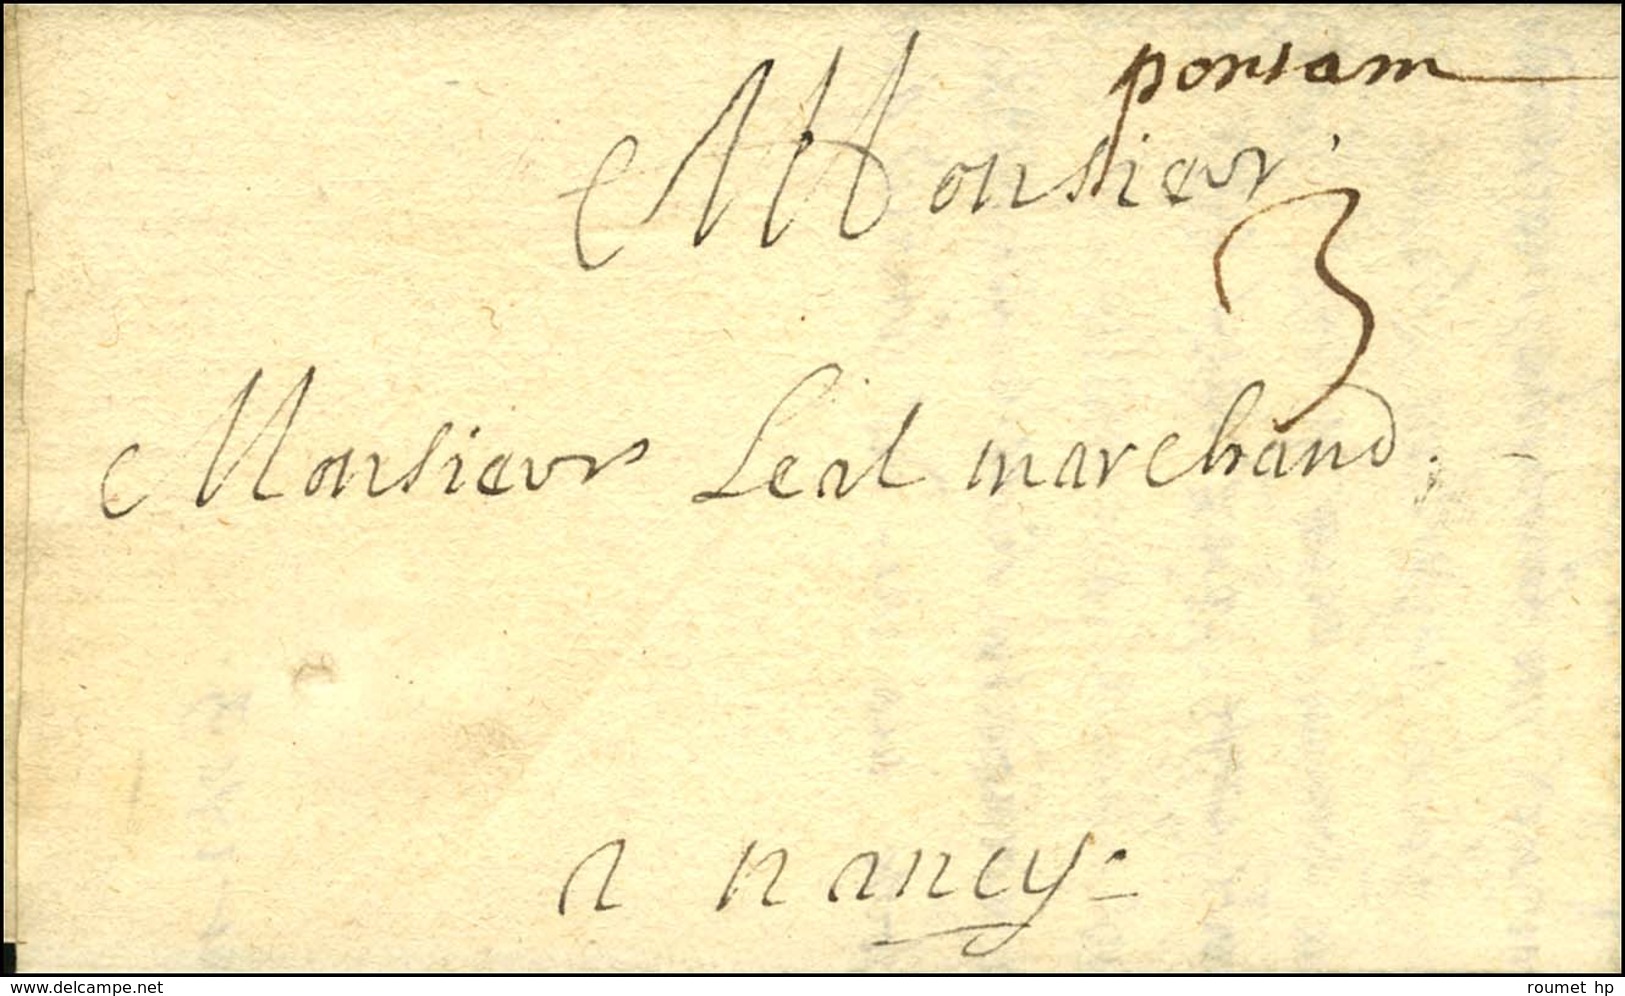 pontam
Monsieur
3
Monsieur Leal marchand
a nancy
www.delcampe.net
roumet hp